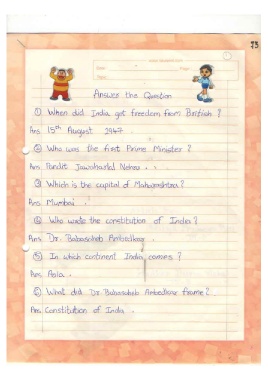 73
Answer the Question
① When did India got freedom from British ?
Ans. 15th August 2947.
② Who was the first Prime Minister ?
Ans. Pandit Jawaharlal Nehru.
③ Which is the capital of Maharashtra ?
Ans. Mumbai.
④ Who wrote the constitution of India ?
Ans. Dr. Babasaheb Ambedkar.
⑤ In which continent India comes ?
Ans. Asia.
⑥ What did Dr Babasaheb Ambedkar frame ?
Ans. Constitution of India.